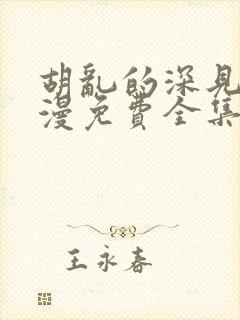 胡亂的深見
漫免費全集
王永春